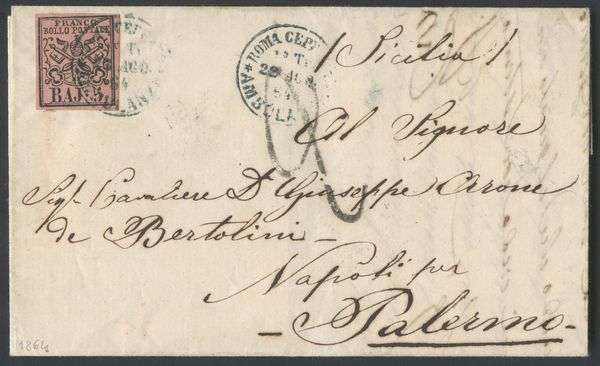 FRANCO
BOLLO POSTALE
BAJ: 5.
ROMA CEP
AMBULANZA
/ Sicilia /
Al Signore
Sigr. Cavaliere D. Giuseppe Arone
de Bertolini –
Napoli per
– Palermo –
1864